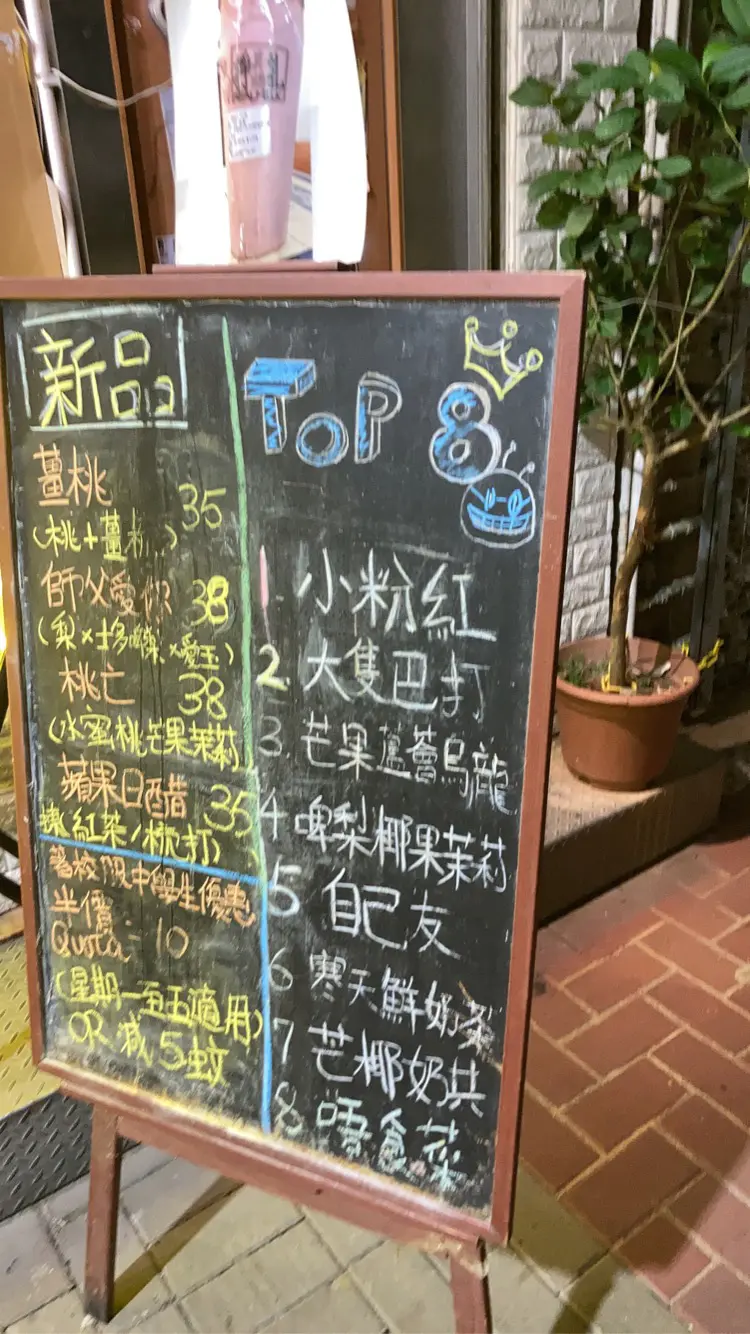 新品
薑桃 35
(桃+薑
師父愛你 38
(梨×士多啤梨×愛玉)
桃亡 38
(水蜜桃芒果茉莉)
蘋果日醋 35
紅茶/梳打)
著校服中學生優惠
半價
Quota 10
(星期一至五適用)
OR 減5蚊
TOP 8
1. 小粉紅
2. 大隻巴打
3. 芒果蘆薈烏龍
4 啤梨椰果茉莉
5 自己友
6 寒天鮮奶茶
7 芒椰奶共
8 唔食菜